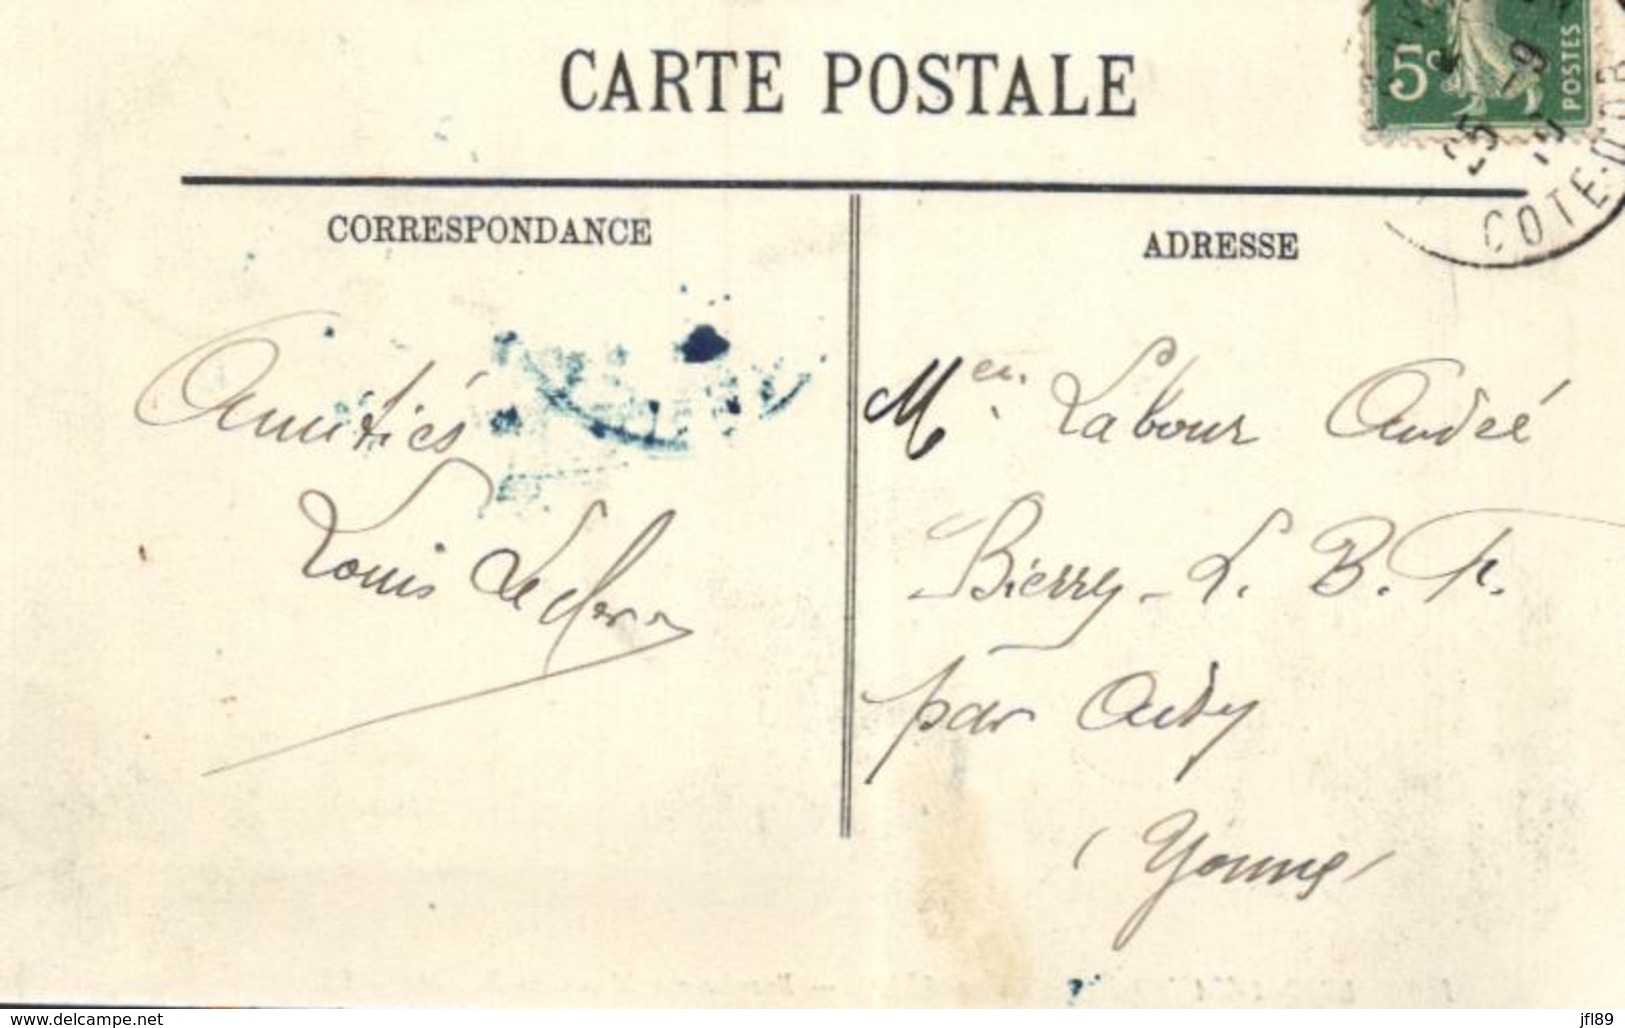 CARTE POSTALE
5c
POSTES
25 -9
COTE-D'OR
CORRESPONDANCE
ADRESSE
Amitiés
Louis
Labour André
Bierry-L. B. F.
par
(Yonne)
www.delcampe.net
jfl89